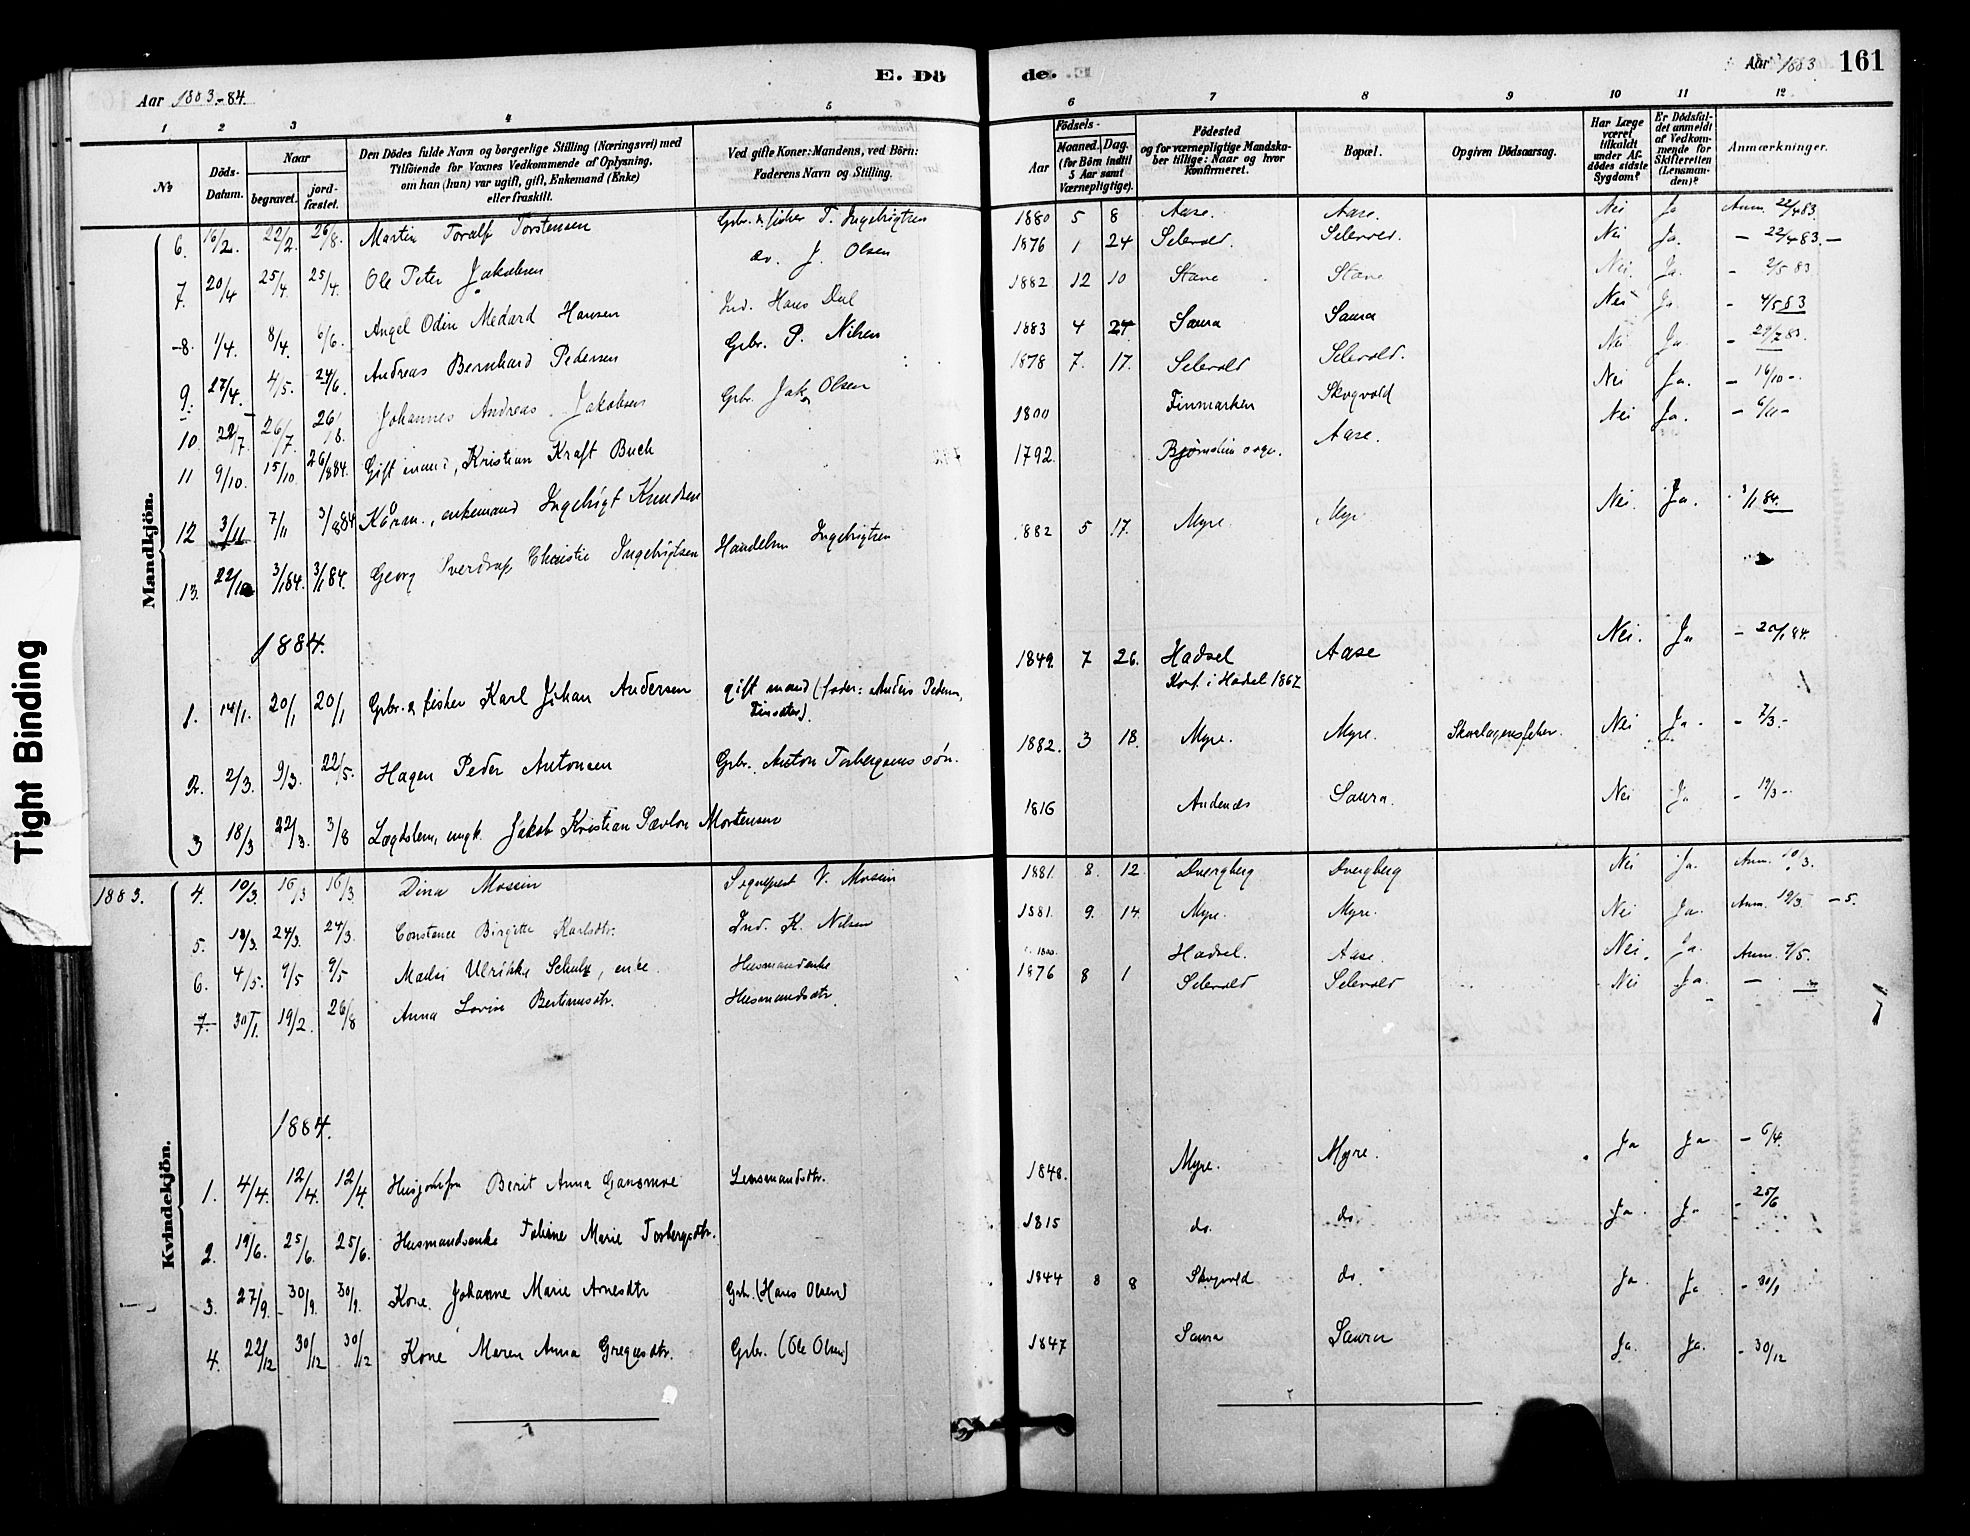 E. Dö
de.
Aar 1883-84.
Aar 1883
161
1 2 3 4 5 6 7 8 9 10 11 12
No
Döds-Datum.
Naar
begravet.
jord-fæstet.
Den Dödes fulde Navn og borgerlige Stilling (Næringsvei) med
Tilföiende for Voxnes Vedkommende af Oplysning,
om han (hun) var ugift, gift, Enkemand (Enke)
eller fraskilt.
Ved gifte Koner: Mandens, ved Börn:
Faderens Navn og Stilling.
Födsels-
Aar
Maaned. Dag.
(for Börn indtil
5 Aar samt
Værnepligtige).
Födested
og for værnepligtige Mandska-
ber tillige: Naar og hvor
konfirmeret.
Bopæl.
Opgiven Dödsaarsag.
Har Læge
været
tilkaldt
under Af-
dödes sidste
Sygdom?
Er Dödsfal-
det anmeldt
af Vedkom-
mende for
Skifteretten
(Lensman-
den)?
Anmærkninger.
Mandkjön.
6. 16/2. 22/2. 26/8. Martin Toralf Torstensen Gbr. & fisker T. Ingebrigtsen 1880 5 8 Aase. Aase. Nei Ja Anm. 22/4 83.
7. 20/4 25/4. 25/4. Ole Peter Jakobsen J. Olsen 1876 1 24 Selevold. Selevold. Nei Ja. - 22/4 83.-
8. 1/4. 8/4. 6/6. Angel Odin Medard Hansen Ind. Hans Dal 1882 12 10 Stave Stave Nei. Ja. - 2/5 83
9. 27/4. 4/5. 24/6. Andreas Bernhard Pedersen Gbr. P. Nilsen 1883 4 24 Saura Saura Nei Ja - 4/5 83
10. 22/7. 26/7. 26/8. Johannes Andreas Jakobsen Gbr. Jak. Olsen 1878 7. 17. Selevold Selevold. Nei Ja. - 29/7 83.
11 9/10. 15/10. 26/8 84. Gift mand, Kristian Kraft Buch 1800 Finmarken Skogvold Nei Ja. - 16/10 -.
12 3/11 7/11 3/8 84 Kårm., enkemand Ingebrigt Knudsen 1792. Aase. Nei Ja. - 6/11 -
13. 3/1 84. 3/1 84. Georg Sverdrup Christie Ingebrigtsen Handelsm Ingebrigtsen 1882 5 17. Myre. Myr Nei. Ja. 3/1 84.
1884.
1. 14/1. 20/1 20/1 Gbr. & fisker Karl Johan Andersen gift mand (fader: Anders Pedersen, 1849. 7 26. Hadsel Aase Nei. Ja - 20/1 84.
Konf. i Hadsel 1867
2. 2/3. 9/3. 22/5. Hagen Peder Antonsen Gbr. Anton Torbergsens sön. 1882. 3 18. Myre. Myre. Skarlagensfeber. Nei Ja. - 7/3 -
3 18/3 22/3. 3/8 Lægdslem, ungk. Jakob Kristian Mortensen 1816 Andenæs Saura. Nei Ja - 19/3 -
1883.
Kvindekjön.
4. 10/3. 16/3 16/3. Dina Mosein V. Mosein 1881. 8. 12 Dverberg Dverberg Nei Ja. Anm. 10/3.
5. 18/3. 24/3. 24/3. Constance Birgitte Karlsdtr. Ind. K. Nilsen 1881. 9. 14. Myre. Myre. Nei Ja. Anm. 19/3. -5.
6. 4/5. 9/5 9/5 Ulrikke Schulz, enke. Husmandenke 1800. Hadsel. Aase. Nei. Ja. Anm. 9/5.
7. 30/1. 19/2. 26/8 Anna Lovise Bertinusdtr. Husmandsdtr. 1876 8 1 Selevold Selevold Nei Ja. -
1884.
1. 4/4. 12/4. 12/4 Berit Anna Gansmoe Lensmandsdtr. 1848. Myre. Myre. Ja Ja - 6/4.
2. 19/6. 25/6. 25/6. Husmandsenke Marie Torbergsdtr. 1815 do. do. Ja. Ja - 25/6
3. 27/9. 30/9. 30/9. Kone. Johanne Marie Arnesdtr Gbr. (Hans Olsen) 1844 8 8 Skogvold do. Ja Ja - 30/9
4. 22/12 30/12 30/12 Kone Maren Anna Gregusdtr. Gbr. (Ole Olsen) 1847 Saura Saura Ja. Ja. - 30/12
Tight Binding